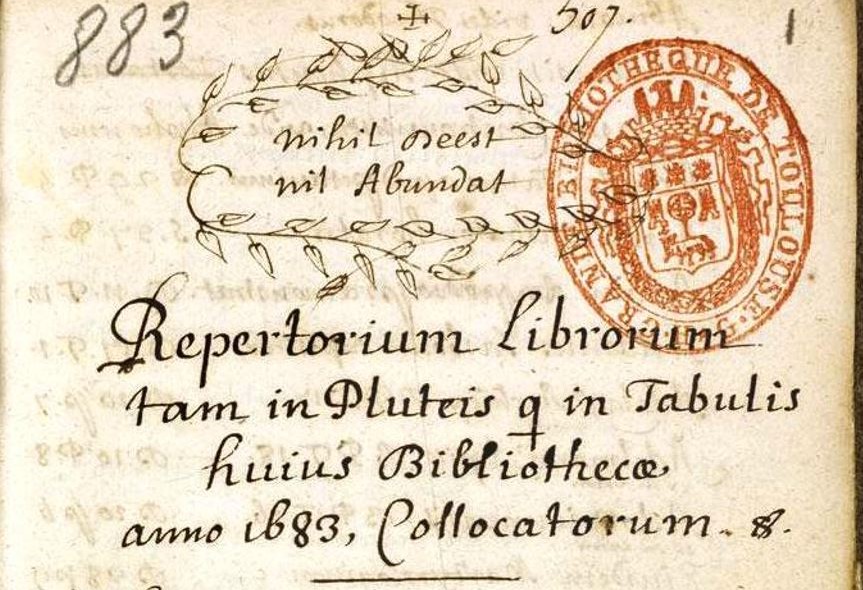 883
507.
1
nihil Deest
nil Abundat
GRANDE BIBLIOTHEQUE DE TOULOUSE.
Repertorium Librorum
tam in Pluteis q̄ in Tabulis
huius Bibliothecæ
anno 1683, Collocatorum. &.